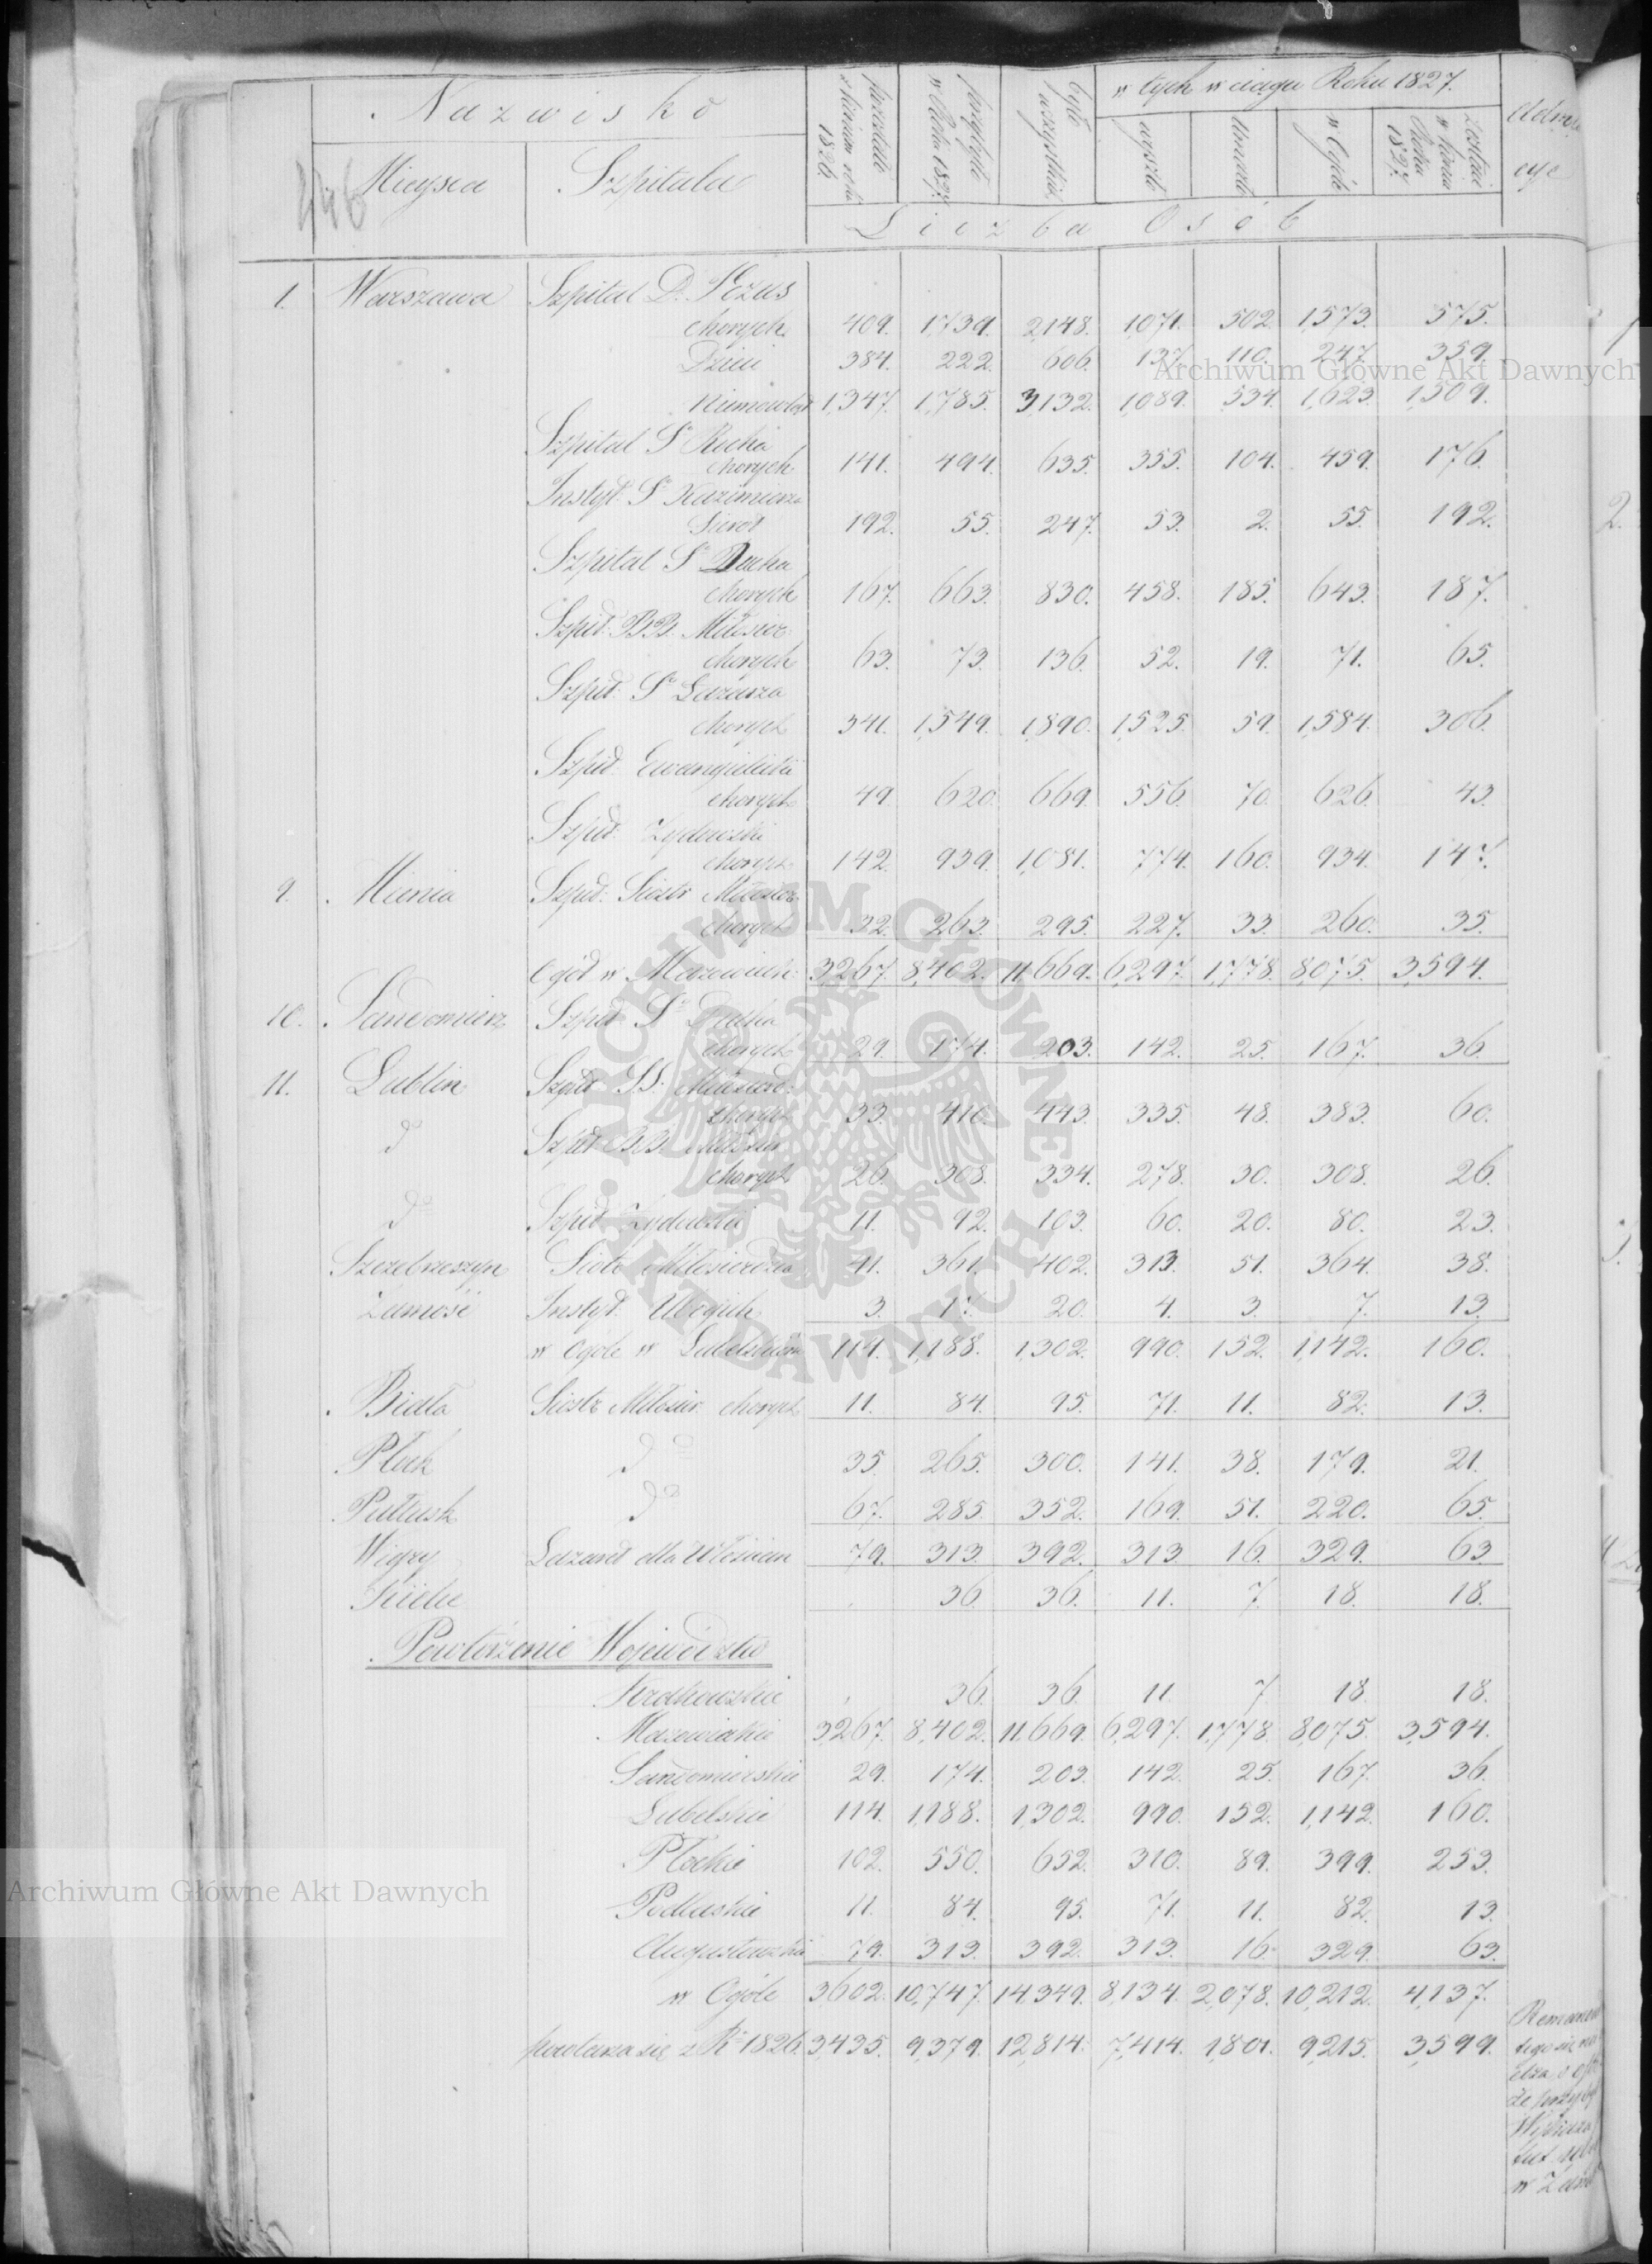 Nazwisko
Mieysca
Szpitala
pozostało z końcem roku 1826
przybyło w Roku 1827
było wszystkich
w tych w ciągu Roku 1827.
wyszło
Umarło
w Ogóle
zostaie w końcu Roku 1827
Liczba Osób
446
1. Warszawa Szpital D. Jezus
chorych 409. 1,739. 2,148. 1,071. 502. 1,573. 575.
Dzieci 384. 222. 606. 137. 110. 247. 359.
Niemowląt 1,347. 1,785. 3,132. 1,089. 534. 1,623. 1,509.
Szpital Sº Rocha
chorych 141. 494. 635. 355. 104. 459. 176.
Instyt. Sº Kazimierza
Sierot 192. 55. 247. 53. 2. 55. 192.
Szpital Sº Ducha
chorych 167. 663. 830. 458. 185. 643. 187.
Szpit. BB. Miłosier.
chorych 63. 73. 136. 52. 19. 71. 65.
Szpit. Sº Łazarza
chorych 341. 1,549. 1,890. 1,525. 59. 1,584. 306.
Szpit. Ewangelicki
chorych 49. 620. 669. 556. 70. 626. 43.
Szpit. Żydowski
chorych 142. 939. 1,081. 774. 160. 934. 147.
9. Mienia Szpit. Siostr Miłosier.
chorych 32. 263. 295. 227. 33. 260. 35.
Ogół w Mazowieck. 3,267. 8,402. 11,669. 6,297. 1,778. 8,075. 3,594.
10. Sandomierz Szpit. Sº Ducha
chorych 29. 174. 203. 142. 25. 167. 36.
11. Lublin Szpit. SS. Miłosierd.
chorych 33. 410. 443. 335. 48. 383. 60.
dº Szpit. BB. Miłosier.
chorych 26. 308. 334. 278. 30. 308. 26.
dº Szpit. Żydowski 11. 92. 103. 60. 20. 80. 23.
Szczebrzeszyn Siostr Miłosierdzia 41. 361. 402. 313. 51. 364. 38.
Zamość Instyt. Ubogich 3. 17. 20. 4. 3. 7. 13.
w Ogóle w Lubelskiem 114. 1,188. 1,302. 990. 152. 1,142. 160.
Biała Siostr Miłosier. chorych 11. 84. 95. 71. 11. 82. 13.
Płock dº 35. 265. 300. 141. 38. 179. 21.
Pułtusk dº 67. 285. 352. 169. 51. 220. 65.
Wigry Lazaret dla Włościan 79. 313. 392. 313. 16. 329. 63.
Kielce 36. 36. 11. 7. 18. 18.
Powtórzenie Województw
Krakowskie 36. 36. 11. 7. 18. 18.
Mazowieckie 3,267. 8,402. 11,669. 6,297. 1,778. 8,075. 3,594.
Sandomierskie 29. 174. 203. 142. 25. 167. 36.
Lubelskie 114. 1,188. 1,302. 990. 152. 1,142. 160.
Płockie 102. 550. 652. 310. 89. 399. 253.
Podlaskie 11. 84. 95. 71. 11. 82. 13.
Augustowskie 79. 313. 392. 313. 16. 329. 63.
w Ogóle 3,602. 10,747. 14,349. 8,134. 2,078. 10,212. 4,137.
powtarza się z Rº 1826 3,435. 9,379. 12,814. 7,414. 1,801. 9,215. 3,599.
Archiwum Główne Akt Dawnych
Archiwum Główne Akt Dawnych
ARCHIWUM GŁÓWNE AKT DAWNYCH